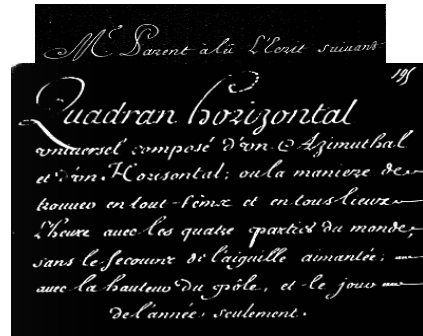 Mr Parent a lû l'Ecrit suivant
195
Quadran horizontal
vniuersel composé d'vn Azimuthal
et d'vn Horisontal; ou la maniere de
trouuer en tout-temx et en tous lieux
l'heure auec les quatre parties du monde,
sans le secours de l'aiguille aimantée;
auec la hauteur du pôle, et le jour
de l'année, seulement.